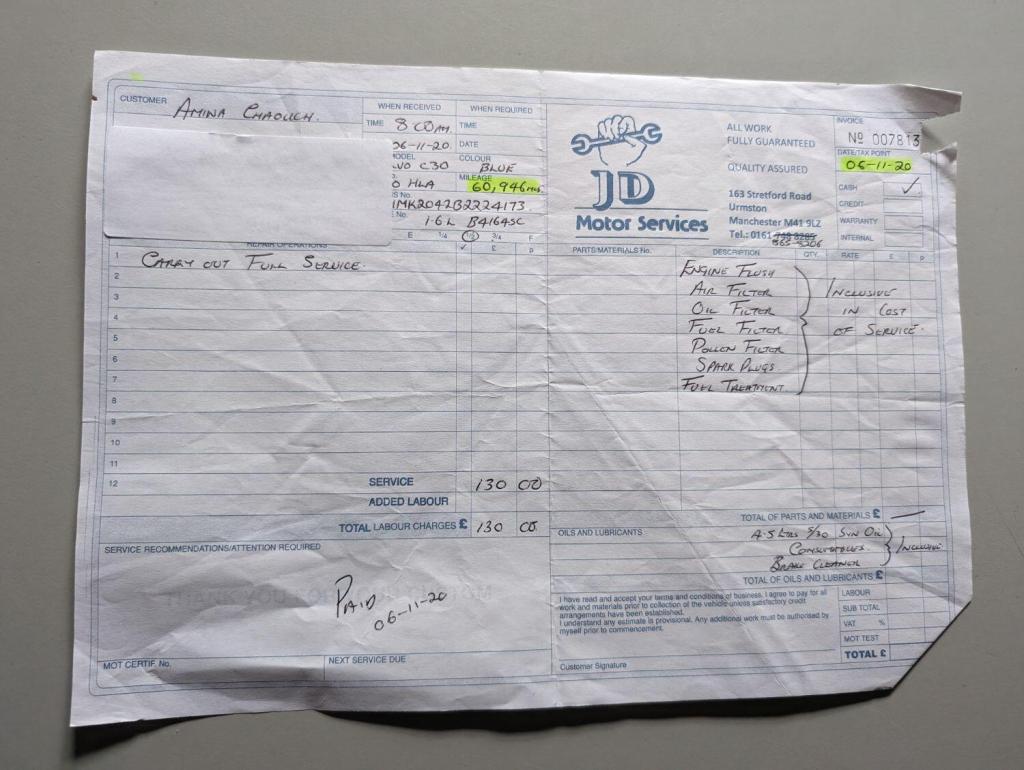 CUSTOMER AMINA CHAOUCH
WHEN RECEIVED WHEN REQUIRED
TIME 8 00AM TIME
06-11-20. DATE
ODEL COLOUR
VO C30 BLUE
MILEAGE
O HLA 60,946 MLS
S No.
1MK2042B2224173
No.
1.6L B4164SC
E 1/4 1/2 3/4 F
REPAIR OPERATIONS ✓ £ p
1 CARRY OUT FULL SERVICE.
2
3
4
5
6
7
8
9
10
11
12
SERVICE 130 00
ADDED LABOUR
TOTAL LABOUR CHARGES £ 130 00
SERVICE RECOMMENDATIONS/ATTENTION REQUIRED
PAID
06-11-20
MOT CERTIF. No.
NEXT SERVICE DUE
JD
Motor Services
ALL WORK
FULLY GUARANTEED
QUALITY ASSURED
163 Stretford Road
Urmston
Manchester M41 9LZ
Tel.: 0161 748 8285
865 3206
INVOICE
No 007813
DATE/TAX POINT
06-11-20
CASH ✓
CREDIT
WARRANTY
INTERNAL
PARTS/MATERIALS No. DESCRIPTION QTY. RATE £ p
ENGINE FLUSH
AIR FILTER INCLUSIVE
OIL FILTER IN COST
FUEL FILTER OF SERVICE.
POLLEN FILTER
SPARK PLUGS
FUEL TREATMENT
TOTAL OF PARTS AND MATERIALS £ —
OILS AND LUBRICANTS 4.5 LTRS 5/30 SYN OIL
CONSUMABLES. INCLUSIVE
BRAKE CLEANER
TOTAL OF OILS AND LUBRICANTS £
I have read and accept your terms and conditions of business. I agree to pay for all
work and materials prior to collection of the vehicle unless satisfactory credit
arrangements have been established.
I understand any estimate is provisional. Any additional work must be authorised by
myself prior to commencement.
Customer Signature
LABOUR
SUB TOTAL
VAT %
MOT TEST
TOTAL £